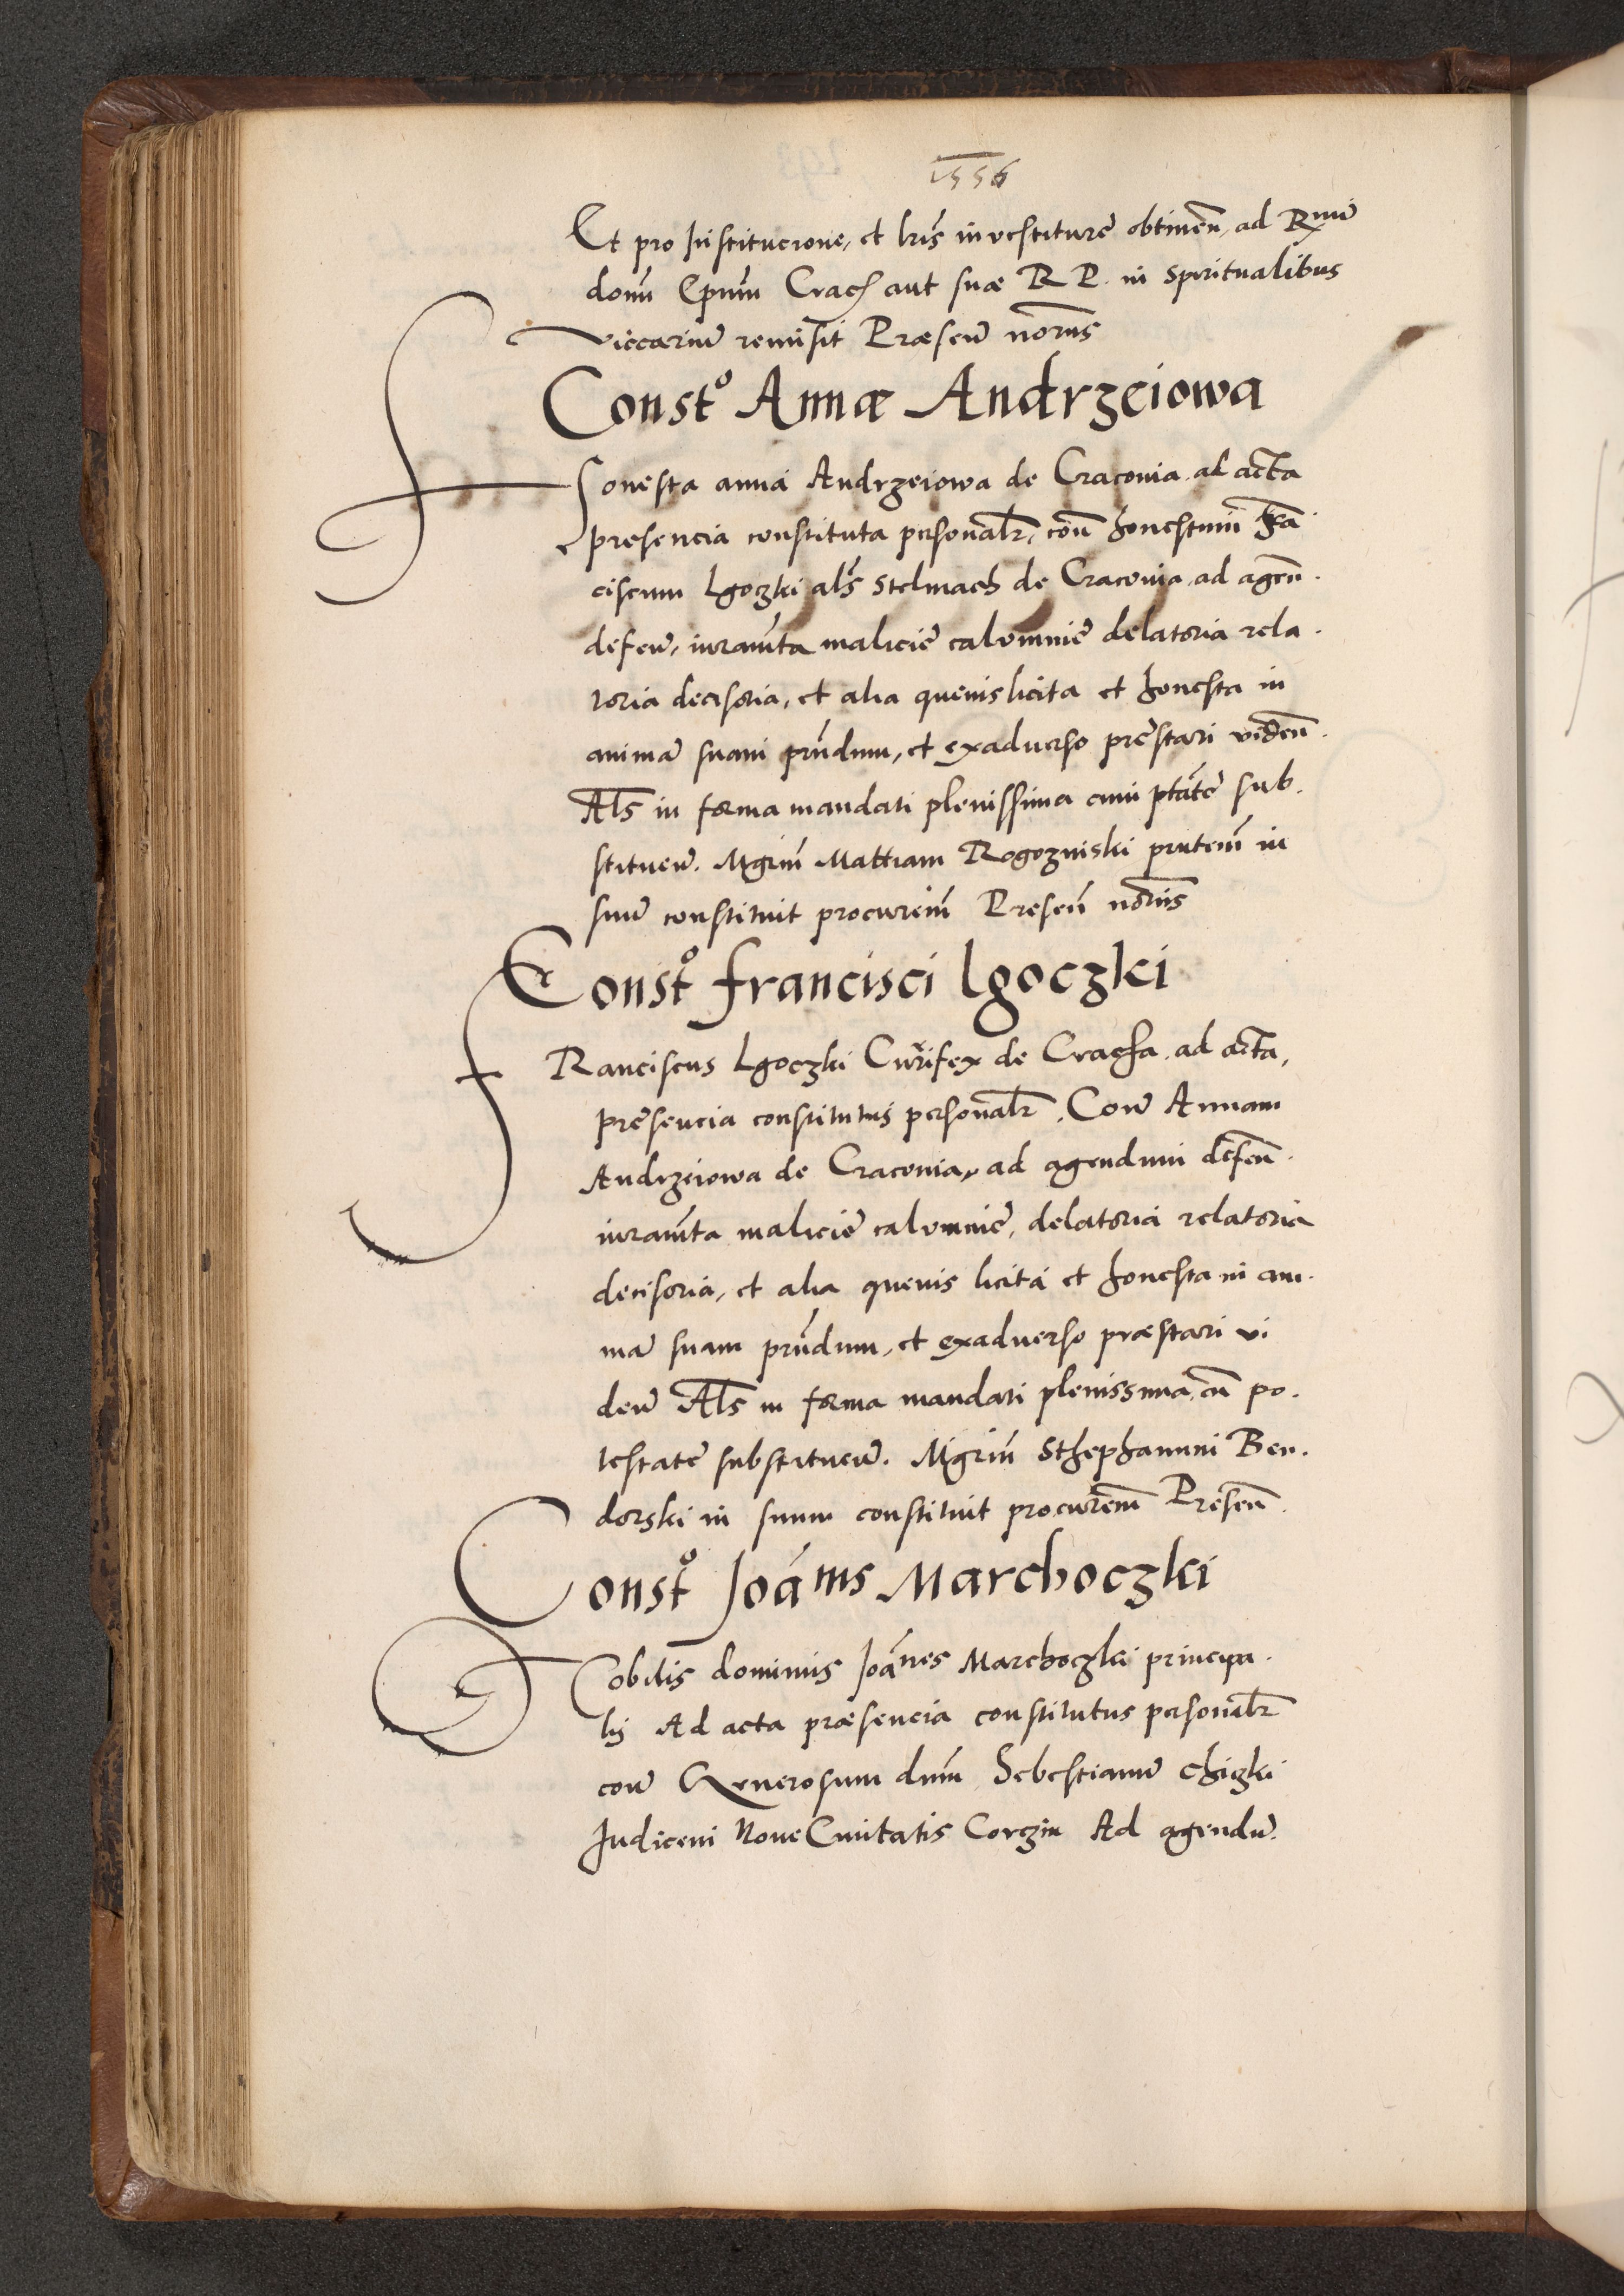 1556
Et pro Institucione, et lrīs investiture obtineñ, ad Rmū
domī Epūm Crac̄ aut suæ R P. in Spiritualibus
viccariū remisit Præseñ norīus
Const° Annæ Andrzeiowa
Honesta anna Andrzeiowa de Craconia ad acta
presencia constituta personalr̄, coñ honestum Frā
ciscum Lgoczki als̄ Stelmach de Craconia ad ageñ.
defeñ, iuram̄ta malicie calumnie delatoria rela.
toria decisoria, et alia quevis licita et honesta in
animā suam prn̄dum, et exadverso prestari videñ.
Als̄ in forma mandati plenissima cum ptāte sub.
stitueñ. Mgrūm Mattiam Rogozniski prn̄tem in
suū constituit procurem̄ Preseñ norīis
Const° Francisci Lgoczki
Franciscus Lgoczki Currifex de Crac̄ha ad acta,
presencia constitutus personalr̄. Coñ Annam
Andrzeiowa de Craconia, ad agendum defeñ.
iuram̄ta malicie calumnie, delatoria relatoria
decisoria, et alia quevis licita et honesta in ani.
mā suam prn̄dum, et exadverso præstari vi
deñ Als̄ in forma mandati plenissima, cū po.
testate substitueñ. Mgrūm Sthephanum Ben.
dorski in suum constituit procurem̄ Preseñ.
Const° Joānis Marchoczki
Nobilis dominus Joānes Marchoczki principa.
lis Ad acta præsencia constitutus personalr̄
coñ Generosum dn̄m Sebestianū Chizki
Judicem Nove Civitatis Corczin Ad agendū.